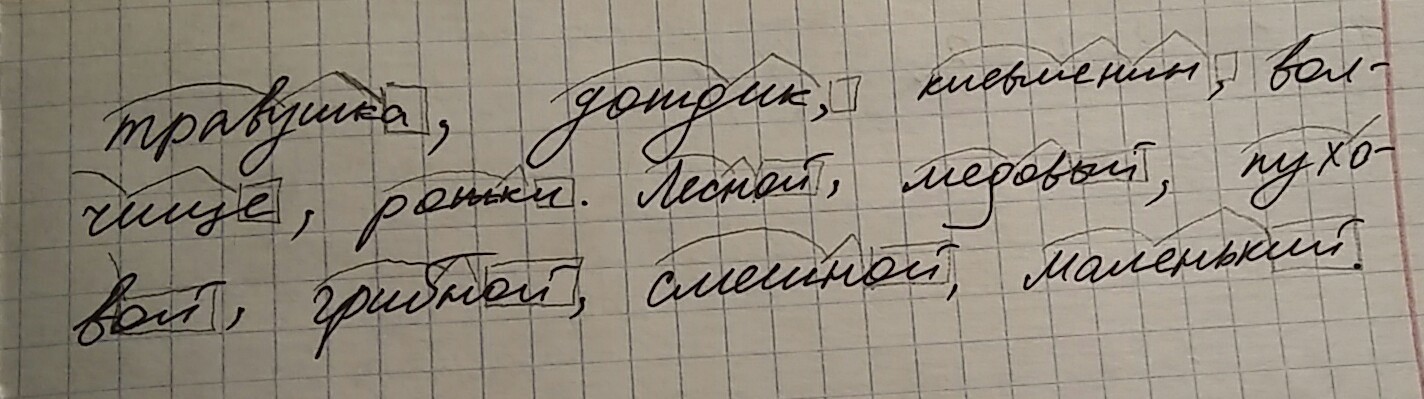 травушка, дождик, киевлянин, вол-
чище, рожки. Лесной, медовый, пухо-
вой, грибной, смешной, маленький.